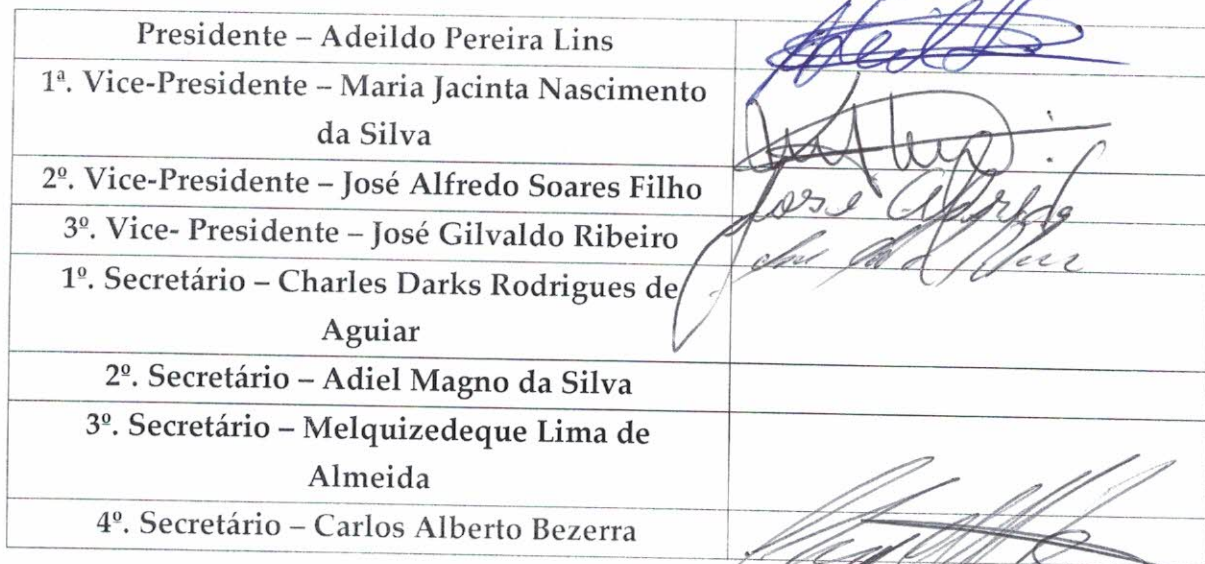 Presidente – Adeildo Pereira Lins
1ª. Vice-Presidente – Maria Jacinta Nascimento
da Silva
2º. Vice-Presidente – José Alfredo Soares Filho
José Alfredo
3º. Vice- Presidente – José Gilvaldo Ribeiro
1º. Secretário – Charles Darks Rodrigues de
Aguiar
2º. Secretário – Adiel Magno da Silva
3º. Secretário – Melquizedeque Lima de
Almeida
4º. Secretário – Carlos Alberto Bezerra